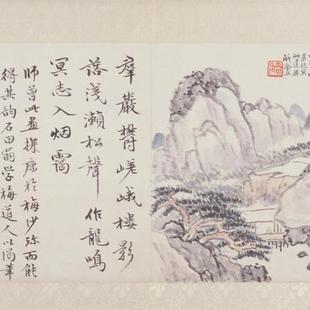 羣巖欝嵯峨楼影
落淺瀨松聲作龍鳴
冥志入烟靄
師曾此画探原於梅沙弥而能
得其韵石田翁学梅道人以渴筆